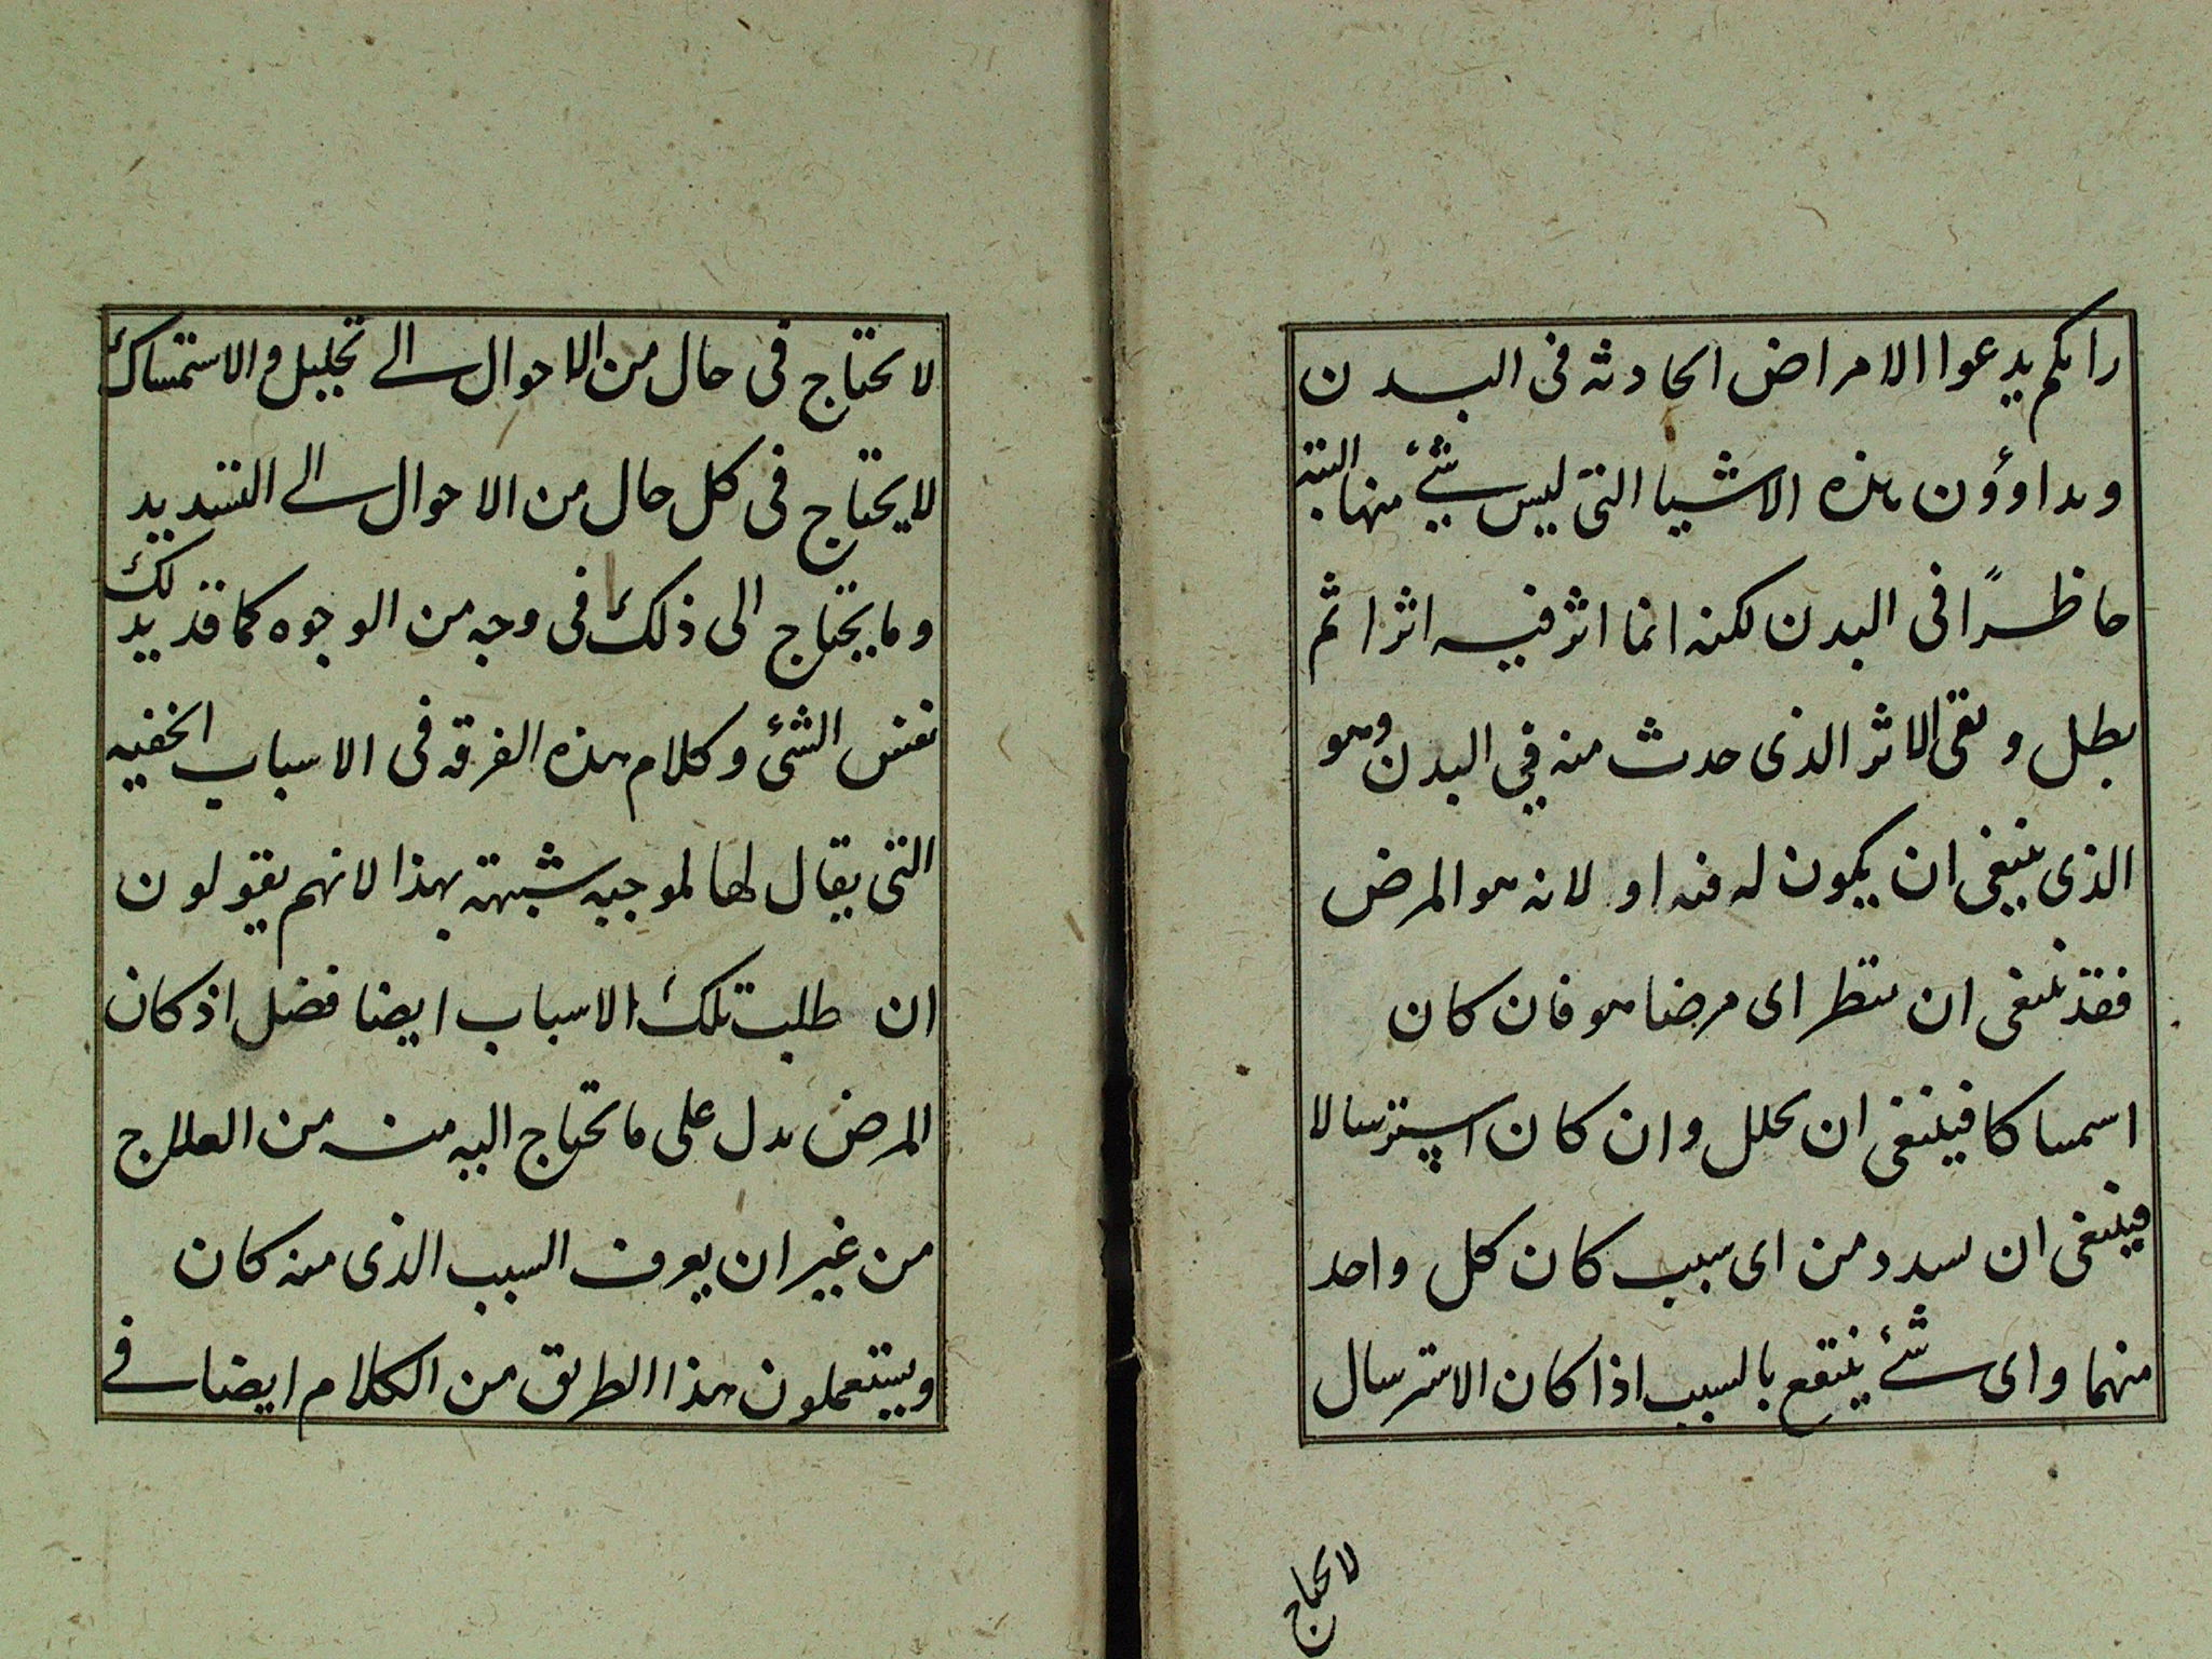 رايكم يدعوا الامراض الحادثه فى البدن
ويداوؤن هذه الاشيا التى ليس شئ منها البتة
حاظرًا فى البدن لكنه انما اثر فيه اثرا ثم
بطل وبقى الاثر الذى حدث منه في البدن وهو
الذى ينبغى ان يكون له فنه او لانه هو المرض
فقد ينبغى ان ينظر اى مرضا هو فان كان
اسمساكا فينبغى ان يحلل وان كان استرسالا
فينبغى ان يسدد من اى سبب كان كل واحد
منهما واى شئ ينتفع بالسبب اذا كان الاسترسال
لا يحتاج
لا يحتاج فى حال من الاحوال الى تحليل والاستمساك
لا يحتاج فى كل حال من الاحوال الى التسديد
وما يحتاج الى ذلك فى وجه من الوجوه كما قد يدلك
نفس الشئ وكلام هذه الفرقه فى الاسباب الخفيه
التى يقال لها لموجبه شبهته بهذا لانهم يقولون
ان طلبت تلك الاسباب ايضا فضل اذ كان
المرض يدل على ما تحتاج اليه منه من العلاج
من غير ان يعرف السبب الذى منه كان
ويستعملون هذا الطريق من الكلام ايضا فى